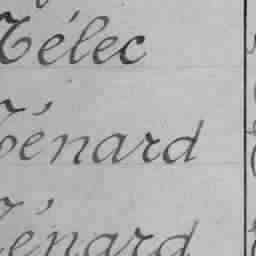 Télec
Ténard
Ténard